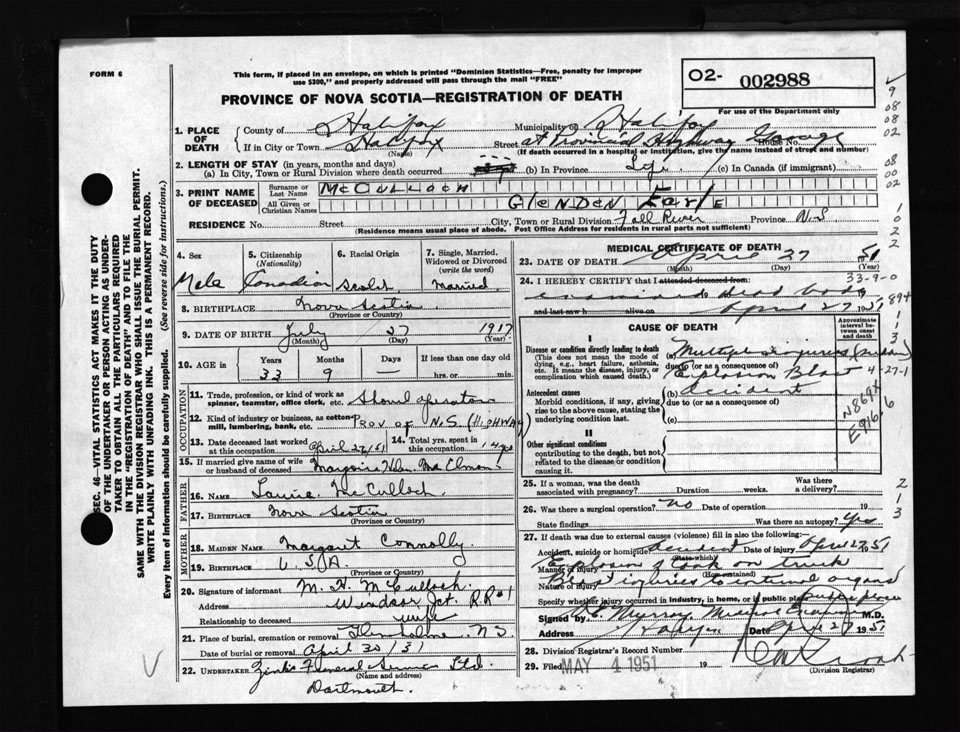 FORM 6
This form, if placed in an envelope, on which is printed "Dominion Statistics—Free, penalty for improper
use $300," and properly addressed will pass through the mail "FREE"
O2- 002988
For use of the Department only
PROVINCE OF NOVA SCOTIA—REGISTRATION OF DEATH
1. PLACE OF DEATH
County of Halifax Municipality of Halifax
If in City or Town Halifax Street at Provincial Highway Garage House No.
(Name) (If death occurred in a hospital or institution, give the name instead of street and number)
2. LENGTH OF STAY (in years, months and days)
(a) In City, Town or Rural Division where death occurred (b) In Province Life (c) In Canada (if immigrant)
3. PRINT NAME OF DECEASED
Surname or Last Name McCULLOCH
All Given or Christian Names GLENDEN EARLE
RESIDENCE No. Street City, Town or Rural Division Fall River Province N.S
(Residence means usual place of abode. Post Office Address for residents in rural parts not sufficient)
4. Sex Male
5. Citizenship (Nationality) Canadian
6. Racial Origin Scotch
7. Single, Married, Widowed or Divorced (write the word) Married
8. BIRTHPLACE Nova Scotia
(Province or Country)
9. DATE OF BIRTH July 27 1917
(Month) (Day) (Year)
10. AGE in Years 33 Months 9 Days — If less than one day old
hrs. or min.
OCCUPATION
11. Trade, profession, or kind of work as spinner, teamster, office clerk, etc. Shovel Operator
12. Kind of industry or business, as cotton-mill, lumbering, bank, etc. Prov of N.S. (HIGHWAY)
13. Date deceased last worked at this occupation April 27/51
14. Total yrs. spent in this occupation 14 yrs
15. If married give name of wife or husband of deceased Marjorie Helen
FATHER
16. NAME Laurie McCulloch
17. BIRTHPLACE Nova Scotia
(Province or Country)
MOTHER
18. MAIDEN NAME Margaret Connolly
19. BIRTHPLACE U.S.A.
(Province or Country)
20. Signature of informant M. H. McCulloch
Address Windsor Jct. R.R #1
Relationship to deceased wife
21. Place of burial, cremation or removal Glenholme N.S.
Date of burial or removal April 30/51
22. UNDERTAKER Zinck's Funeral Service Ltd.
(Name and address)
Dartmouth.
MEDICAL CERTIFICATE OF DEATH
23. DATE OF DEATH April 27 1951
(Month) (Day) (Year)
33-9-0
24. I HEREBY CERTIFY that I attended deceased from:
examined dead body
and last saw h alive on April 27 1951
CAUSE OF DEATH
Approximate interval between onset and death
I
Disease or condition directly leading to death
(This does not mean the mode of dying, e.g., heart failure, asthenia, etc. It means the disease, injury, or complication which caused death).
(a) Multiple injuries (sudden)
due to (or as a consequence of)
Explosion Blast 4-27-1
Antecedent causes
Morbid conditions, if any, giving rise to the above cause, stating the underlying condition last.
(b) Accident
due to (or as a consequence of)
(c)
N869X
E916 6
II
Other significant conditions
contributing to the death, but not related to the disease or condition causing it.
25. If a woman, was the death associated with pregnancy? Duration weeks. Was there a delivery?
26. Was there a surgical operation? no Date of operation 19
State findings Was there an autopsy? Yes
27. If death was due to external causes (violence) fill in also the following:
Accident, suicide or homicide? Accident Date of injury April 27 1951
(State which)
Manner of injury Explosion of tank on truck
(How sustained)
Nature of injury Blast injuries to internal organs
Specify whether injury occurred in industry, in home, or in public place public place
Signed by Murray, Medical Examiner M.D.
Address Halifax Date April 27 1951
28. Division Registrar's Record Number
29. Filed MAY 4 1951 19
(Division Registrar)
SEC. 46—VITAL STATISTICS ACT MAKES IT THE DUTY
OF THE UNDERTAKER OR PERSON ACTING AS UNDERTAKER
TO OBTAIN ALL THE PARTICULARS REQUIRED
IN THE "REGISTRATION OF DEATH" AND TO FILE THE
SAME WITH THE DIVISION REGISTRAR WHO SHALL ISSUE THE BURIAL PERMIT.
WRITE PLAINLY WITH UNFADING INK. THIS IS A PERMANENT RECORD.
Every item of information should be carefully supplied. (See reverse side for instructions.)